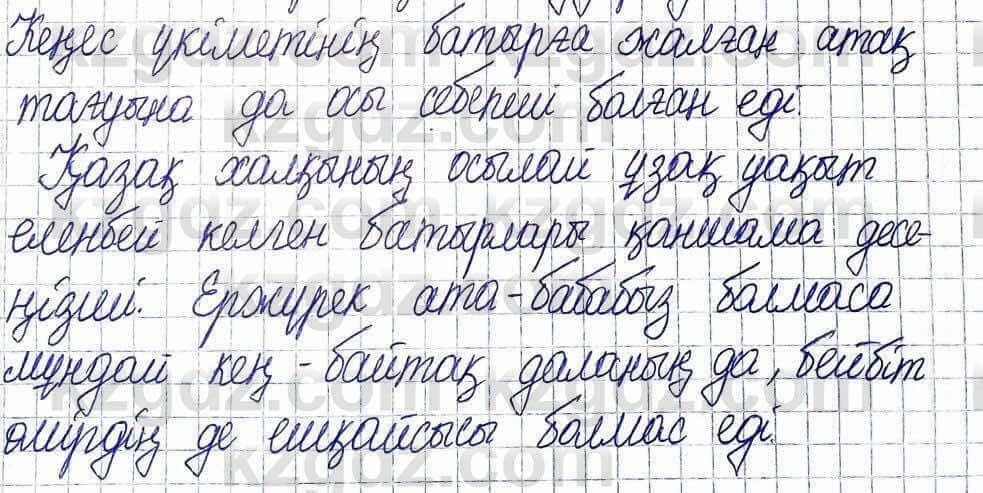 Кеңес үкіметінің батырға жалған атақ
тағуына да осы себепші болған еді.
Қазақ халқының осылай ұзақ уақыт
еленбей келген батырлары қаншама десе-
ңізші. Ержүрек ата-бабабыз болмаса
мұндай кең-байтақ даланың да, бейбіт
өмірдің де ешқайсысы болмас еді.
kzgdz.com